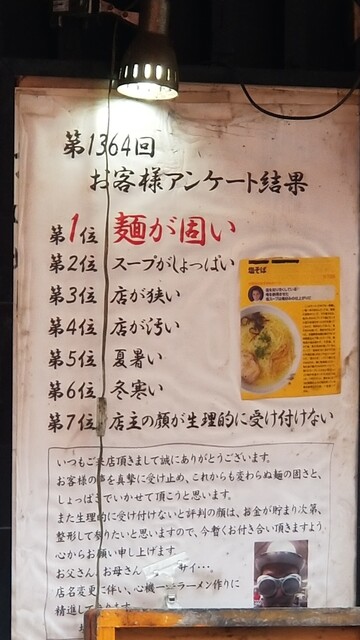 第1364回
お客様アンケート結果
第1位 麺が固い
第2位 スープがしょっぱい
第3位 店が狭い
第4位 店が汚い
第5位 夏暑い
第6位 冬寒い
第7位 店主の顔が生理的に受け付けない
塩そば
いつもご来店頂きまして誠にありがとうございます。
お客様の事を真摯に受け止め、これからも変わらぬ麺の固さと、
しょっぱさでいかせて頂こうと思います。
また生理的に受け付けないと評判の顔は、お金が貯まり次第、
整形して参りたいと思いますので、今暫くお付き合い頂きますよう
心からお願い申し上げます。
お父さん、お母さん サイ…。
店名変更に伴い、心機一 ラーメン作りに
精進して ります。